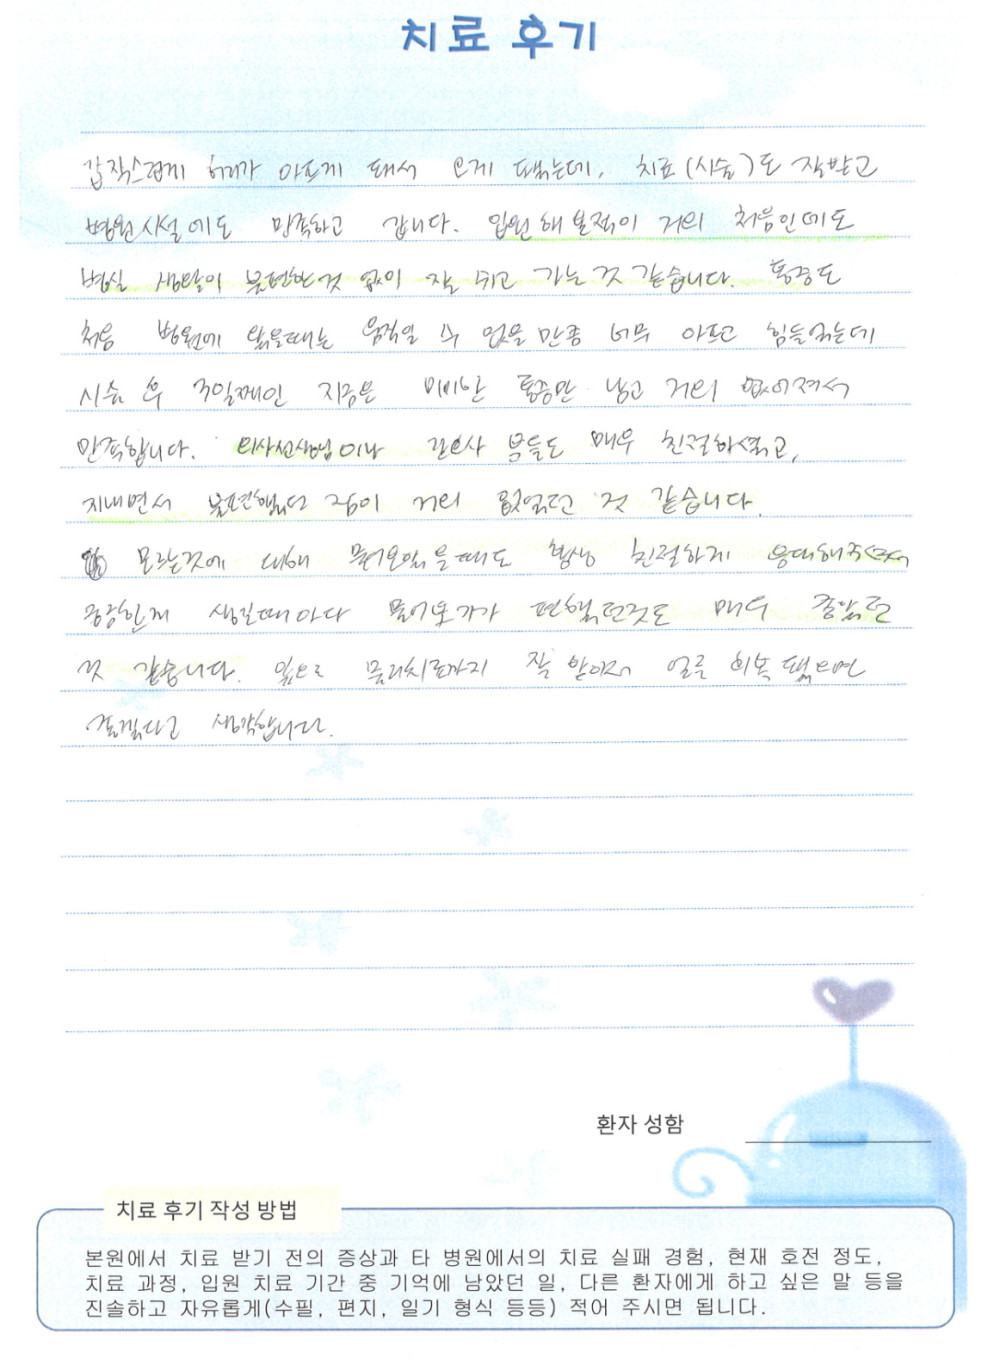 치료 후기
갑작스럽게 허리가 아프게 돼서 오게 됐는데, 치료(시술)도 잘받고
병원시설에도 만족하고 갑니다. 입원해본적이 거의 처음인데도
병실 생활이 불편한것 없이 잘 쉬고 가는것 같습니다. 통증도
처음 병원에 왔을때는 움직일 수 없을만큼 너무 아프고 힘들었는데
시술 후 3일째인 지금은 미미한 통증만 남고 거의 없어져서
만족합니다. 의사선생님이나 간호사 분들도 매우 친절하셨고,
지내면서 불편했던 점이 거의 없었던 것 같습니다.
모르는것에 대해 물어보았을때도 항상 친절하게 응대해주셔서
궁금한게 생길때마다 물어보기가 편했던것도 매우 좋았던
것 같습니다. 앞으로 물리치료까지 잘 받아서 얼른 회복 됐으면
좋겠다고 생각합니다.
환자 성함
치료 후기 작성 방법
본원에서 치료 받기 전의 증상과 타 병원에서의 치료 실패 경험, 현재 호전 정도,
치료 과정, 입원 치료 기간 중 기억에 남았던 일, 다른 환자에게 하고 싶은 말 등을
진솔하고 자유롭게(수필, 편지, 일기 형식 등등) 적어 주시면 됩니다.